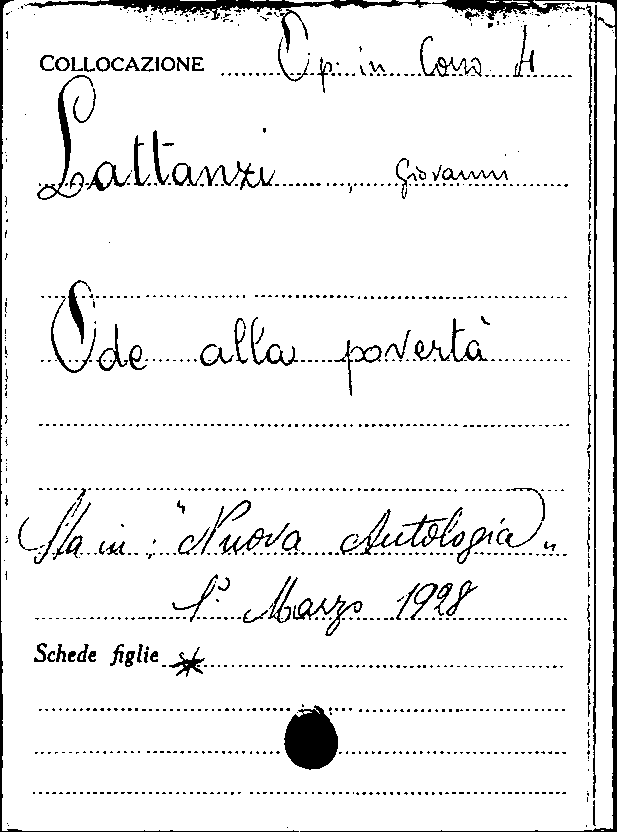 COLLOCAZIONE Op. in Corso 4
Lattanzi, Giovanni
Ode alla povertà
Sta in: "Nuova Antologia„
1° Marzo 1928
Schede figlie *